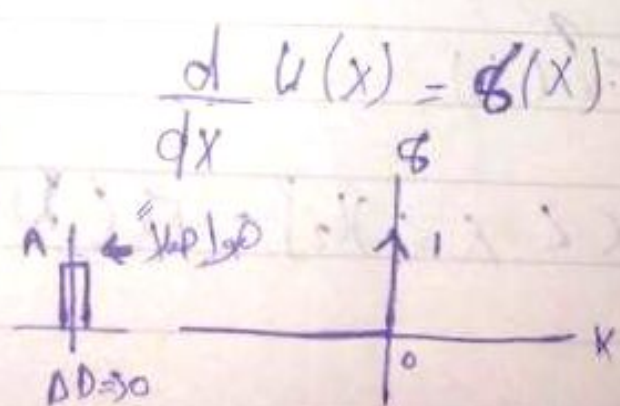 d/dx u(x) = δ(x)
δ
A ←
1
0
x
ΔD→0